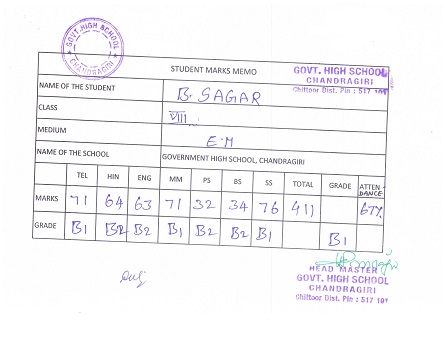 GOVT. HIGH SCHOOL
CHANDRAGIRI
STUDENT MARKS MEMO
GOVT. HIGH SCHOOL
CHANDRAGIRI
Chittoor Dist. Pin : 517 101
NAME OF THE STUDENT B. SAGAR
CLASS VIII
MEDIUM E.M
NAME OF THE SCHOOL GOVERNMENT HIGH SCHOOL, CHANDRAGIRI
TEL HIN ENG MM PS BS SS TOTAL GRADE ATTEN-DANCE
MARKS 71 64 63 71 32 34 76 411 67%
GRADE B1 B2 B2 B1 B2 B2 B1 B1
HEAD MASTER
GOVT. HIGH SCHOOL
CHANDRAGIRI
Chittoor Dist. Pin : 517 101